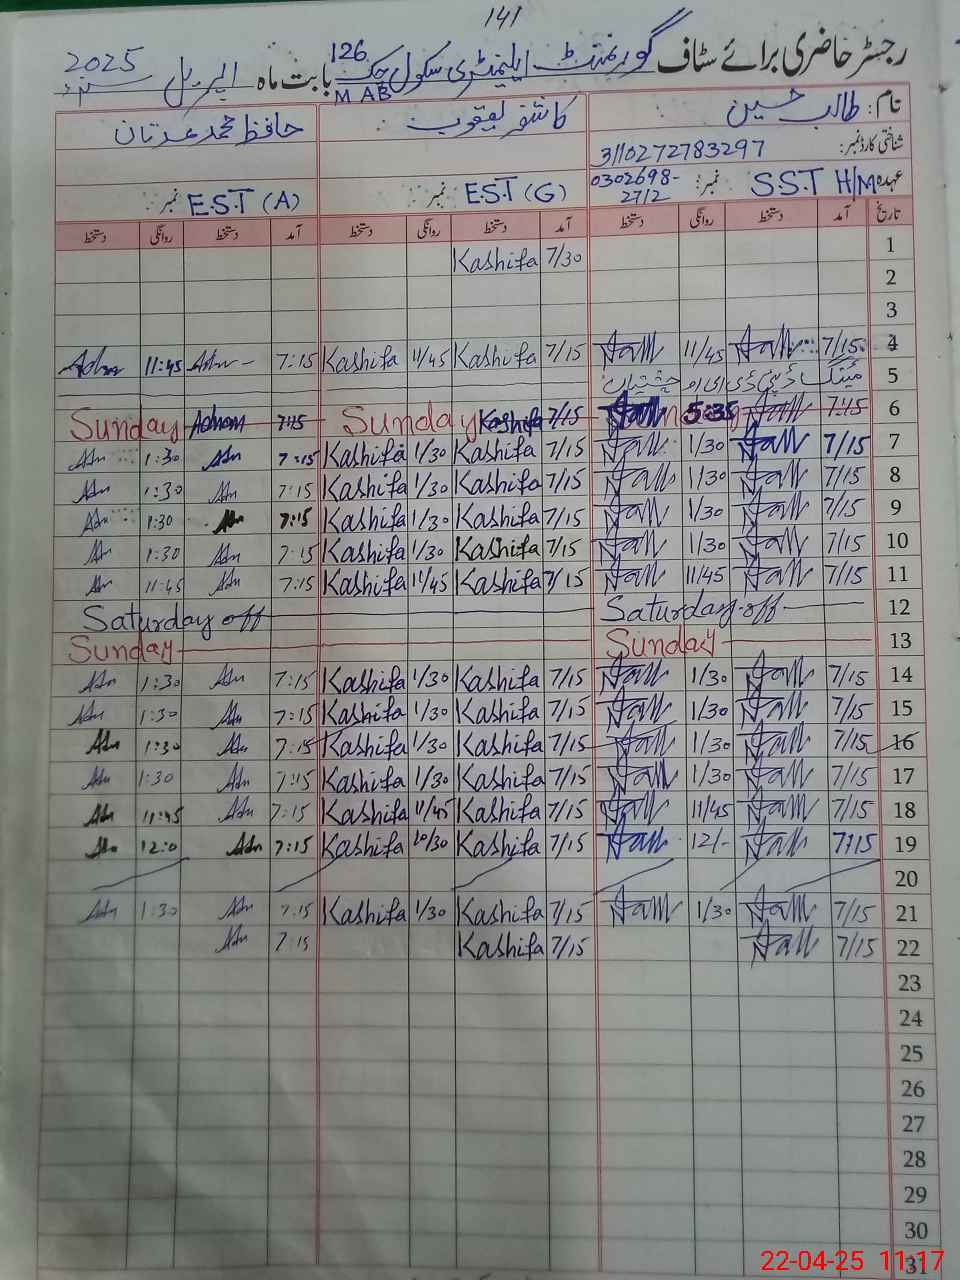 141
رجسٹر حاضری برائے سٹاف گورنمنٹ ایلیمنٹری سکول چک 126 MAB بابت ماہ اپریل سنہ 2025
نام: طالب حسین کاشفہ یعقوب حافظ محمد عدنان
شناختی کارڈ نمبر: 3110272783297
عہدہ S.S.T H/M نمبر: 0302698-27/2 E.S.T (G) نمبر: E.S.T (A)
تاریخ آمد دستخط روانگی دستخط آمد دستخط روانگی دستخط آمد دستخط روانگی دستخط
1 7/30 Kashifa
2
3
4 7/15 11/45 7/15 Kashifa 11/45 Kashifa 7:15 Adnan 11:45 Adnan
5 میٹنگ ڈپٹی ڈی ای او چشتیاں
6 7:15 5:35 7/15 Kashifa Sunday 7:15 Adnan Sunday
7 7/15 1/30 7/15 Kashifa 1/30 Kashifa 7:15 Adn 1:30 Adn
8 7/15 1/30 7/15 Kashifa 1/30 Kashifa 7:15 Adn 1:30 Adn
9 7/15 1/30 7/15 Kashifa 1/30 Kashifa 7:15 Adn 1:30 Adn
10 7/15 1/30 7/15 Kashifa 1/30 Kashifa 7:15 Adn 1:30 Adn
11 7/15 11/45 7/15 Kashifa 11/45 Kashifa 7:15 Adn 11:45 Adn
12 Saturday off Saturday off
13 Sunday Sunday
14 7/15 1/30 7/15 Kashifa 1/30 Kashifa 7:15 Adn 1:30 Adn
15 7/15 1/30 7/15 Kashifa 1/30 Kashifa 7:15 Adn 1:30 Adn
16 7/15 1/30 7/15 Kashifa 1/30 Kashifa 7:15 Adn 1:30 Adn
17 7/15 1/30 7/15 Kashifa 1/30 Kashifa 7:15 Adn 1:30 Adn
18 7/15 11/45 7/15 Kashifa 11/45 Kashifa 7:15 Adn 11:45 Adn
19 7/15 12/- 7/15 Kashifa 10/30 Kashifa 7:15 Adn 12:0 Adn
20
21 7/15 1/30 7/15 Kashifa 1/30 Kashifa 7:15 Adn 1:30 Adn
22 7/15 7/15 Kashifa 7:15 Adn
23
24
25
26
27
28
29
30
31
22-04-25 11:17